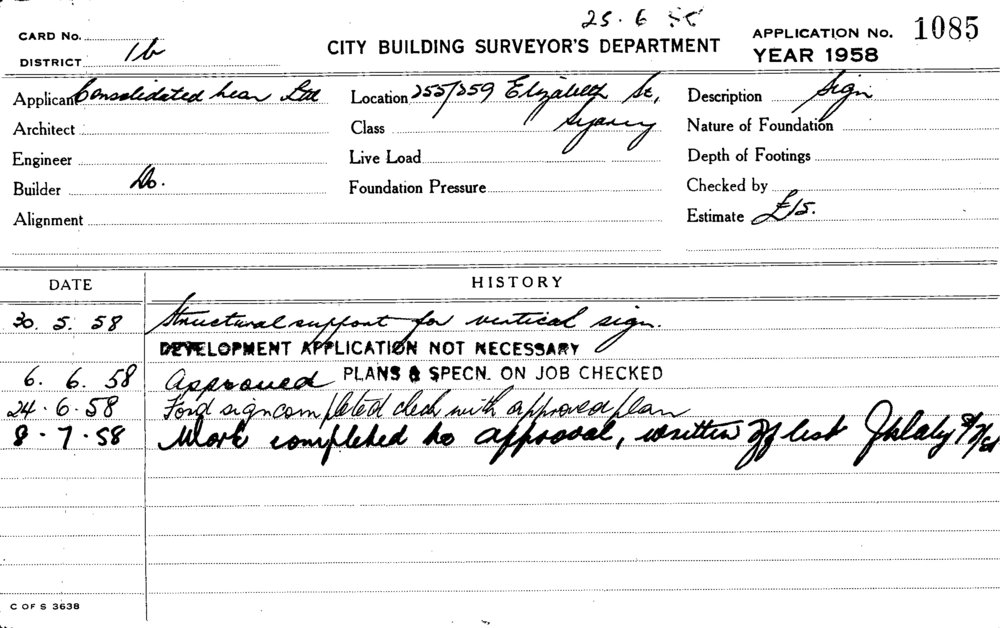 25. 6 58
CARD No. CITY BUILDING SURVEYOR'S DEPARTMENT APPLICATION No. 1085
DISTRICT 1b YEAR 1958
Applicant Consolidated Ltd Location 255/259 Elizabeth St, Description Sign
Architect Class Sydney Nature of Foundation
Engineer Live Load Depth of Footings
Builder Do. Foundation Pressure Checked by
Alignment Estimate £15.
DATE HISTORY
30. 5. 58 Structural support for vertical sign.
DEVELOPMENT APPLICATION NOT NECESSARY
6. 6. 58 Approved PLANS & SPECN. ON JOB CHECKED
24. 6. 58 Ford sign completed check with approved plan
8. 7. 58 Work completed to approval, written off list
C OF S 3638